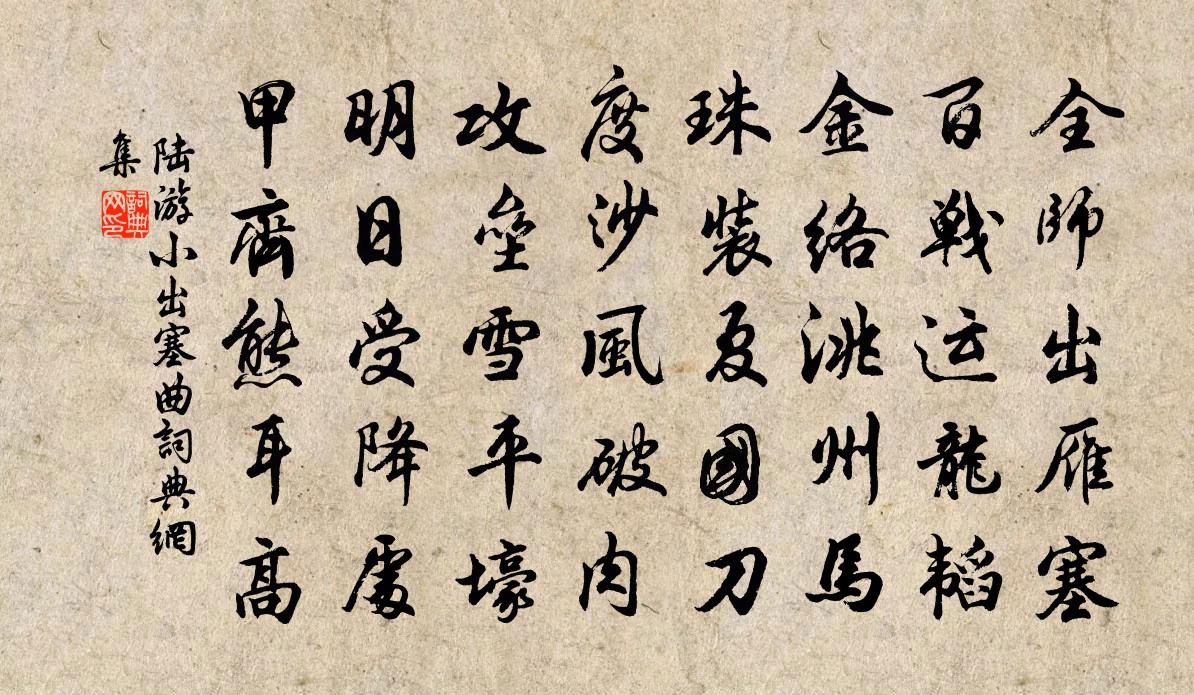 全師出雁塞
百戦运龍韬
金絡洮州馬
珠装夏國刀
度沙風破肉
攻垒雪平壕
明日受降處
甲齊熊耳高
陆游小出塞曲詞典網
集
詞典
网印